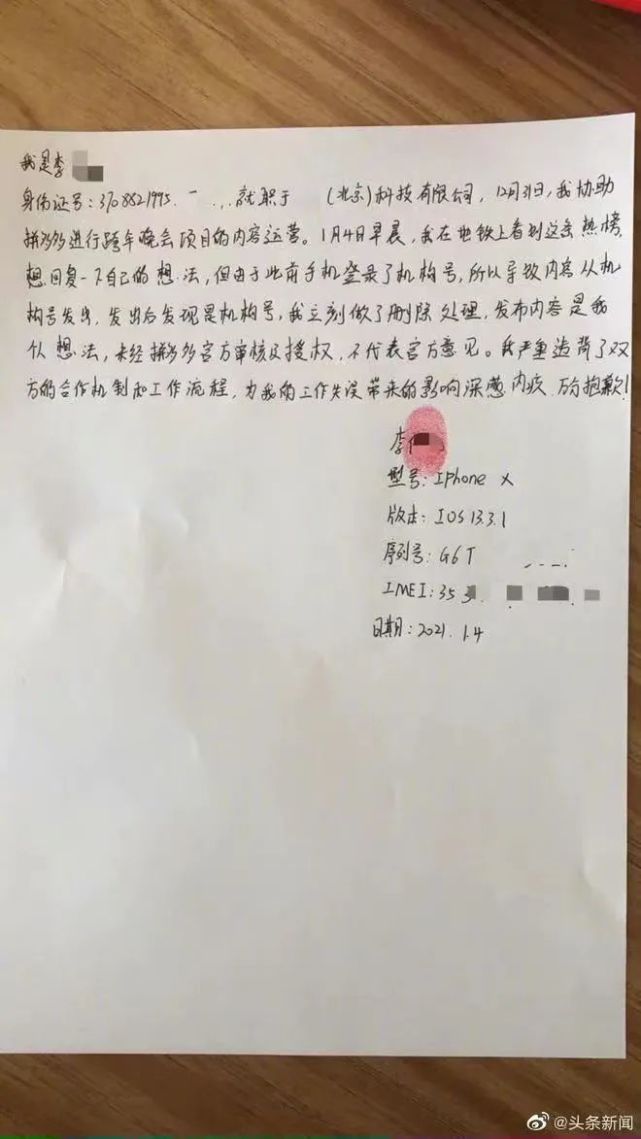 我是李
身份证号：3708821995. 就职于 (北京)科技有限公司，12月31日，我协助
拼多多进行跨年晚会项目的内容运营。1月4日早晨，我在地铁上看到这条热榜，
想回复一下自己的想法，但由于此前手机登录了机构号，所以导致内容从机
构号发出，发出后发现是机构号，我立刻做了删除处理，发布内容是我
个人想法，未经拼多多官方审核及授权，不代表官方意见。我严重违背了双
方的合作机制和工作流程，为我的工作失误带来的影响深感内疚 万分抱歉！
李
型号：Iphone X
版本：IOS 13.3.1
序列号：G6T
IMEI：35
日期：2021.1.4
@头条新闻